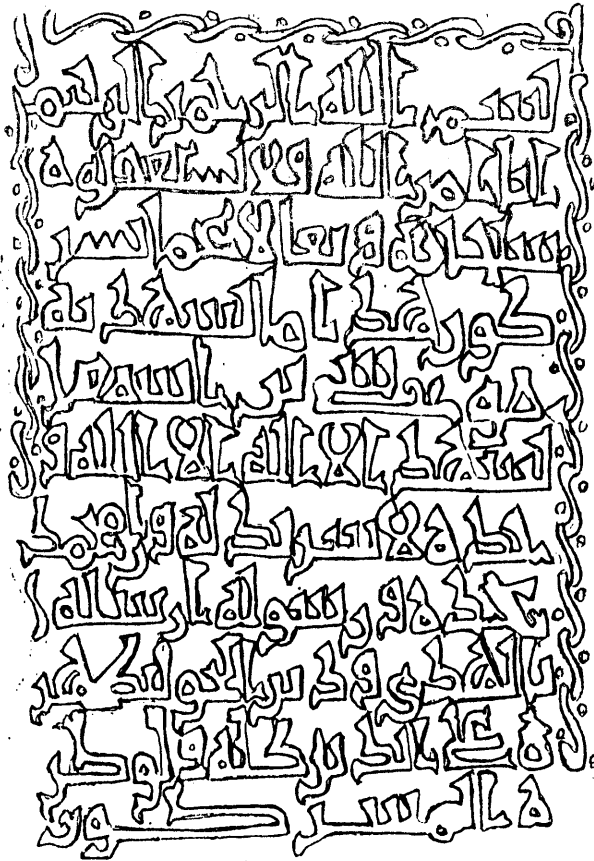 بسم الله الرحمن الرحيم
اتا امر الله فلا تستعجلوه
سبحنه وتعلا عما يشر
كون هذا ما يشهد به
يشهد الا اله الا الله و
حده لا شريك له وان محمد
عبده ورسوله ارسله
بالهدى ودين الحق ليظهر
ه على الدين كله ولو كر
ه المشركون